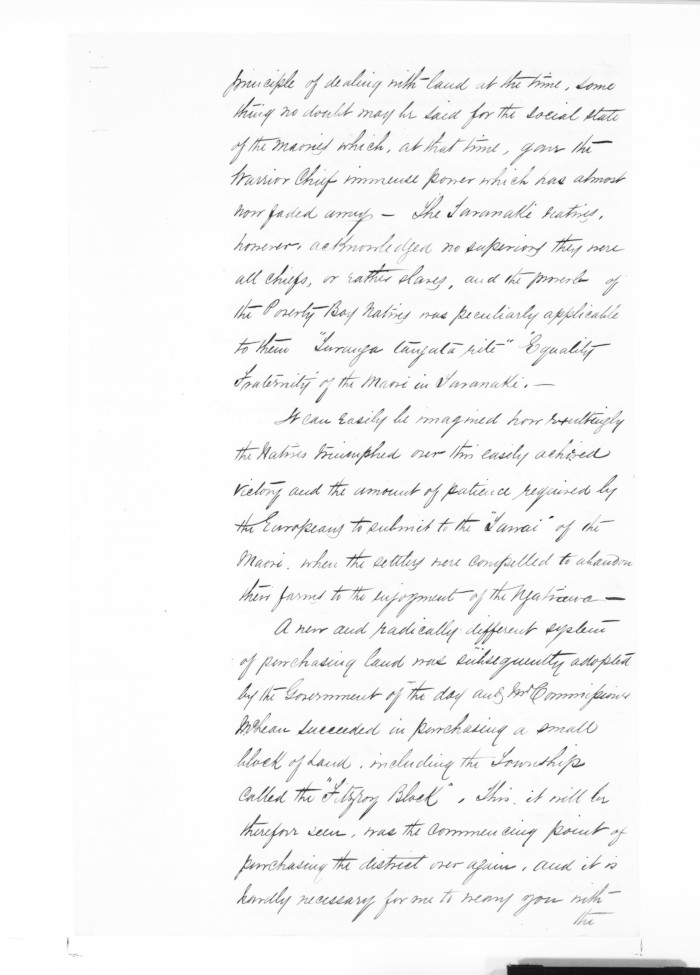 principle of dealing with land at the time, some
thing no doubt may be said for the social state
of the maories which, at that time, gave the
Warrior Chief immense power which has almost
now faded away — The Taranaki natives,
however, acknowledged no superiors they were
all chiefs, or rather slaves, and the proverb of
the Poverty Bay Natives was peculiarly applicable
to them "Turanga tangata rite" "Equality
Fraternity" of the Maori in Taranaki. —
It can easily be imagined how exultingly
the Natives triumphed over this easily achived
victory and the amount of patience required by
the Europeans to submit to the of the
Maori. when the settlers were compelled to abandon
their farms to the enjoyment of the Ngatiawa —
A new and radically different system
of purchasing land was subsequently adopted
by the Government of the day and Mr Commissioner
McLean succeeded in purchasing a small
block of Land, including the Township
called the "Fitzroy Block". This, it will be
therefore seen, was the commencing point of
purchasing the district over again, and it is
hardly necessary for me to weary you with
the